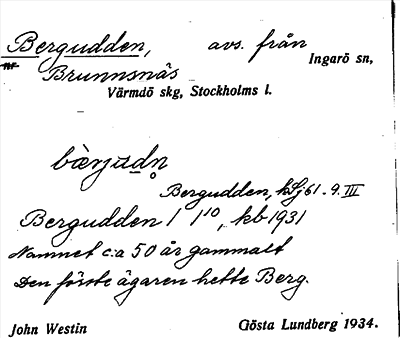 Bergudden, avs. från
nr Brunnsnäs Ingarö sn,
Värmdö skg, Stockholms l.
bærjudn̥
Bergudden, kSj 61. 9. III
Bergudden 1 1¹⁰, kb 1931
Namnet c:a 50 år gammalt
Den förste ägaren hette Berg.
John Westin Gösta Lundberg 1934.